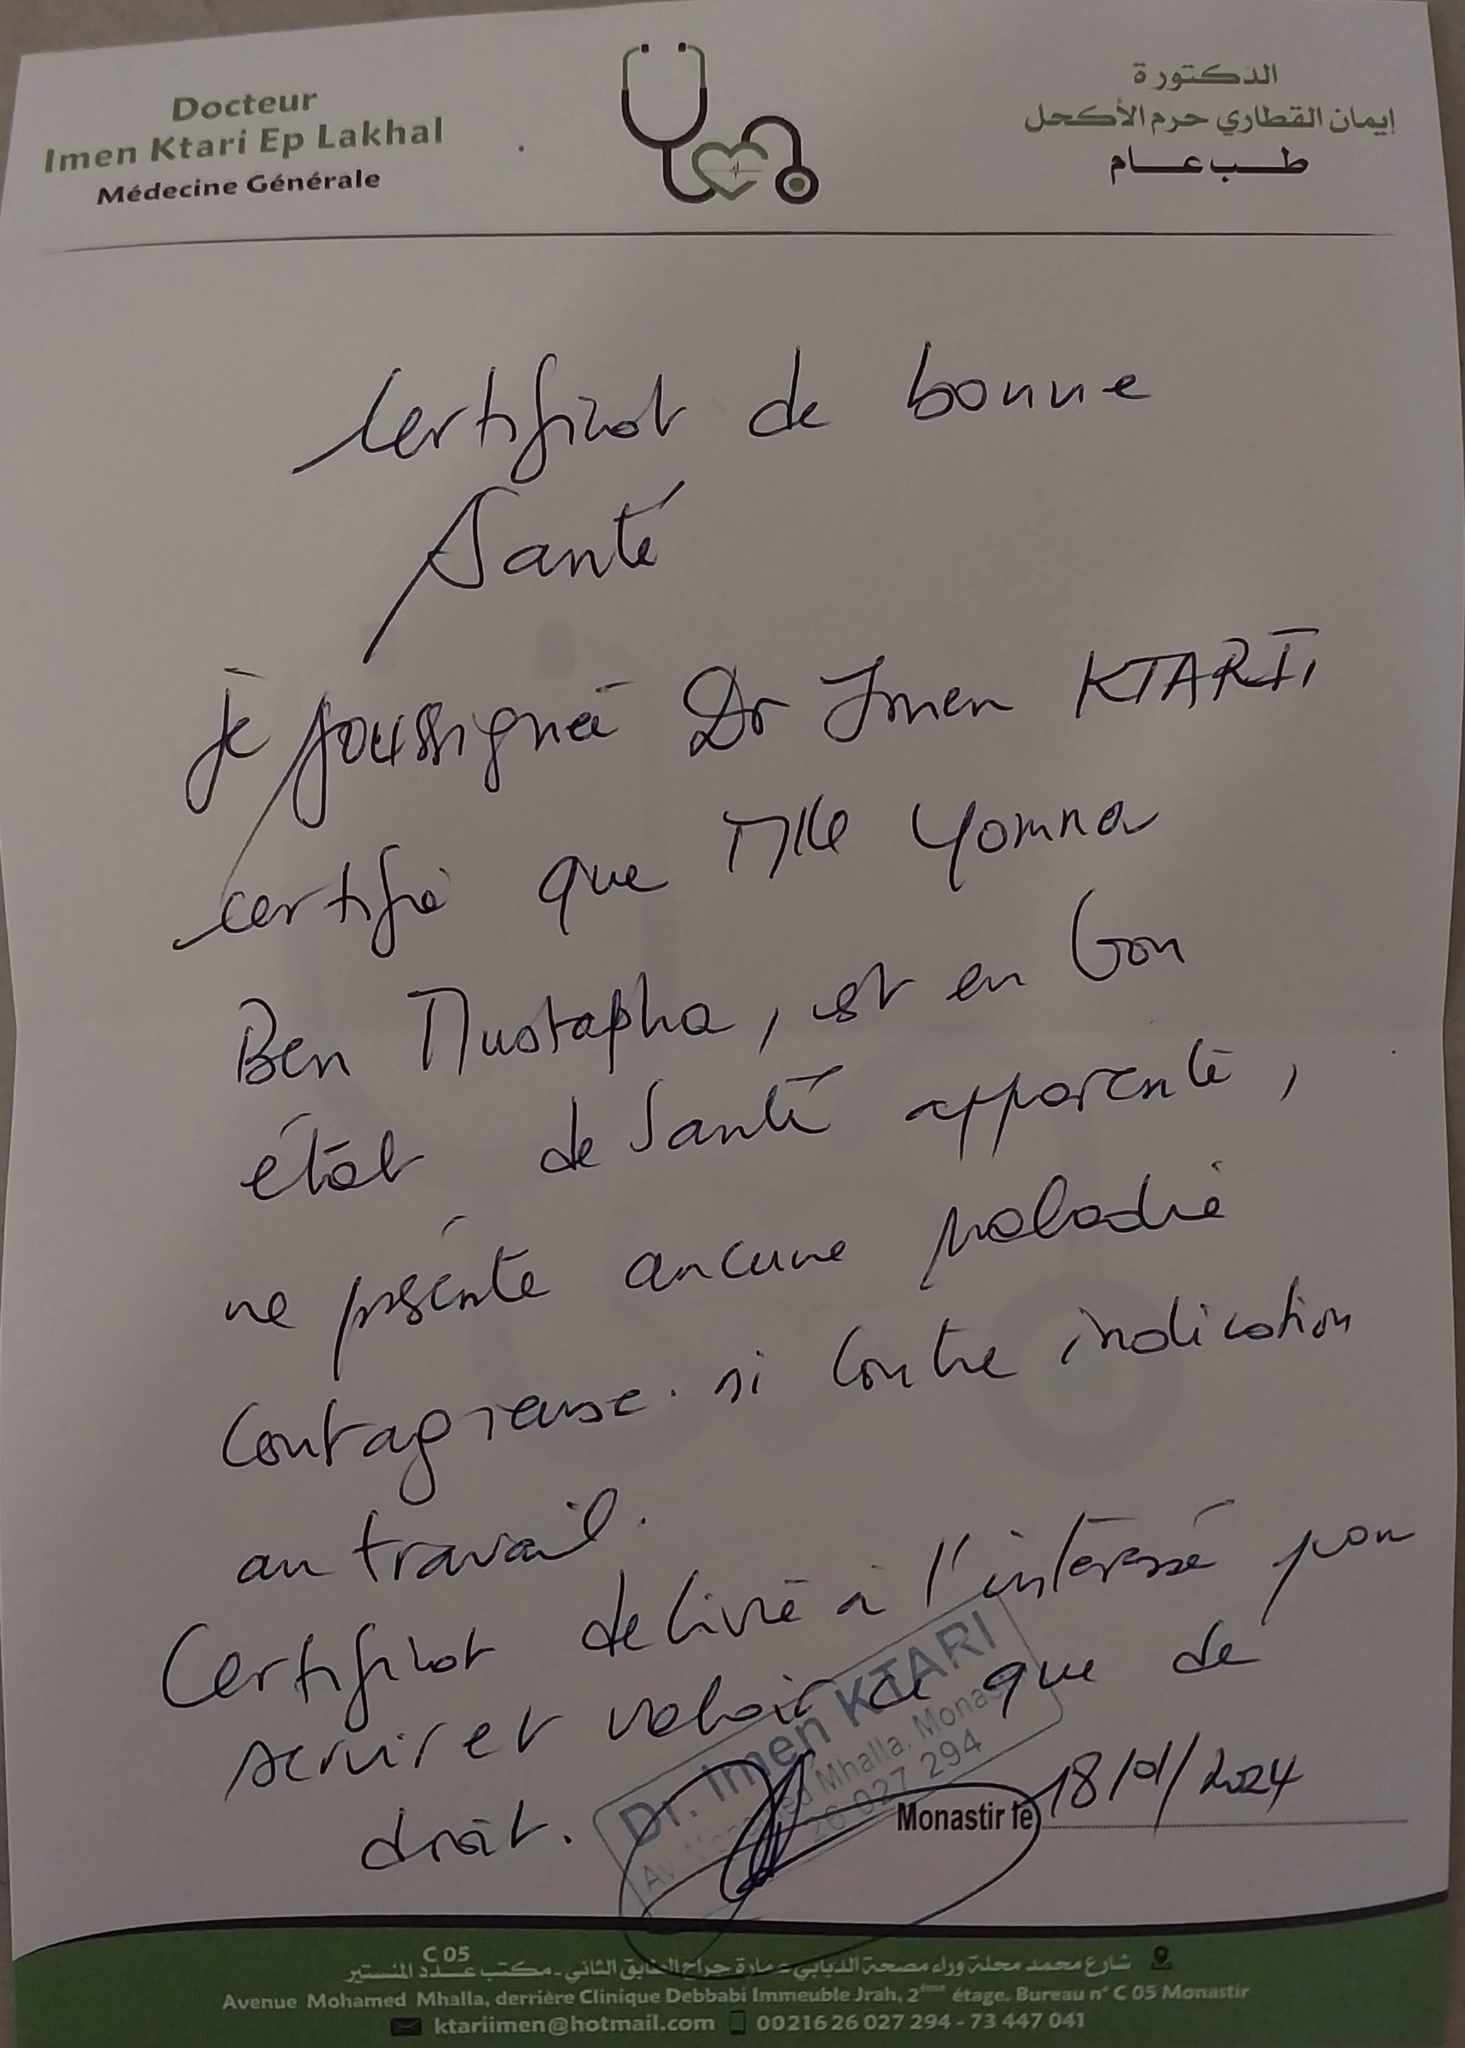 Docteur
Imen Ktari Ep Lakhal
Médecine Générale
الدكتورة
إيمان القطاري حرم الأكحل
طب عام
Certificat de bonne
Santé
Je soussignée Dr Imen KTARI,
certifie que Mlle Yomna
Ben Mustapha, est en bon
état de Santé apparente,
ne présente aucune maladie
contagieuse. ni contre indication
au travail.
Certificat delivré à l'intéressé pour
servir et valoir ce que de
droit.
Dr. Imen KTARI
Mhalla, Monas
26 027 294
Monastir le 18/01/2024
شارع محمد محلة وراء مصحة الدبابي - عمارة جراح الطابق الثاني - مكتب عدد C 05 المنستير
Avenue Mohamed Mhalla, derrière Clinique Debbabi Immeuble Jrah, 2ème étage. Bureau n° C 05 Monastir
ktariimen@hotmail.com 00216 26 027 294 - 73 447 041